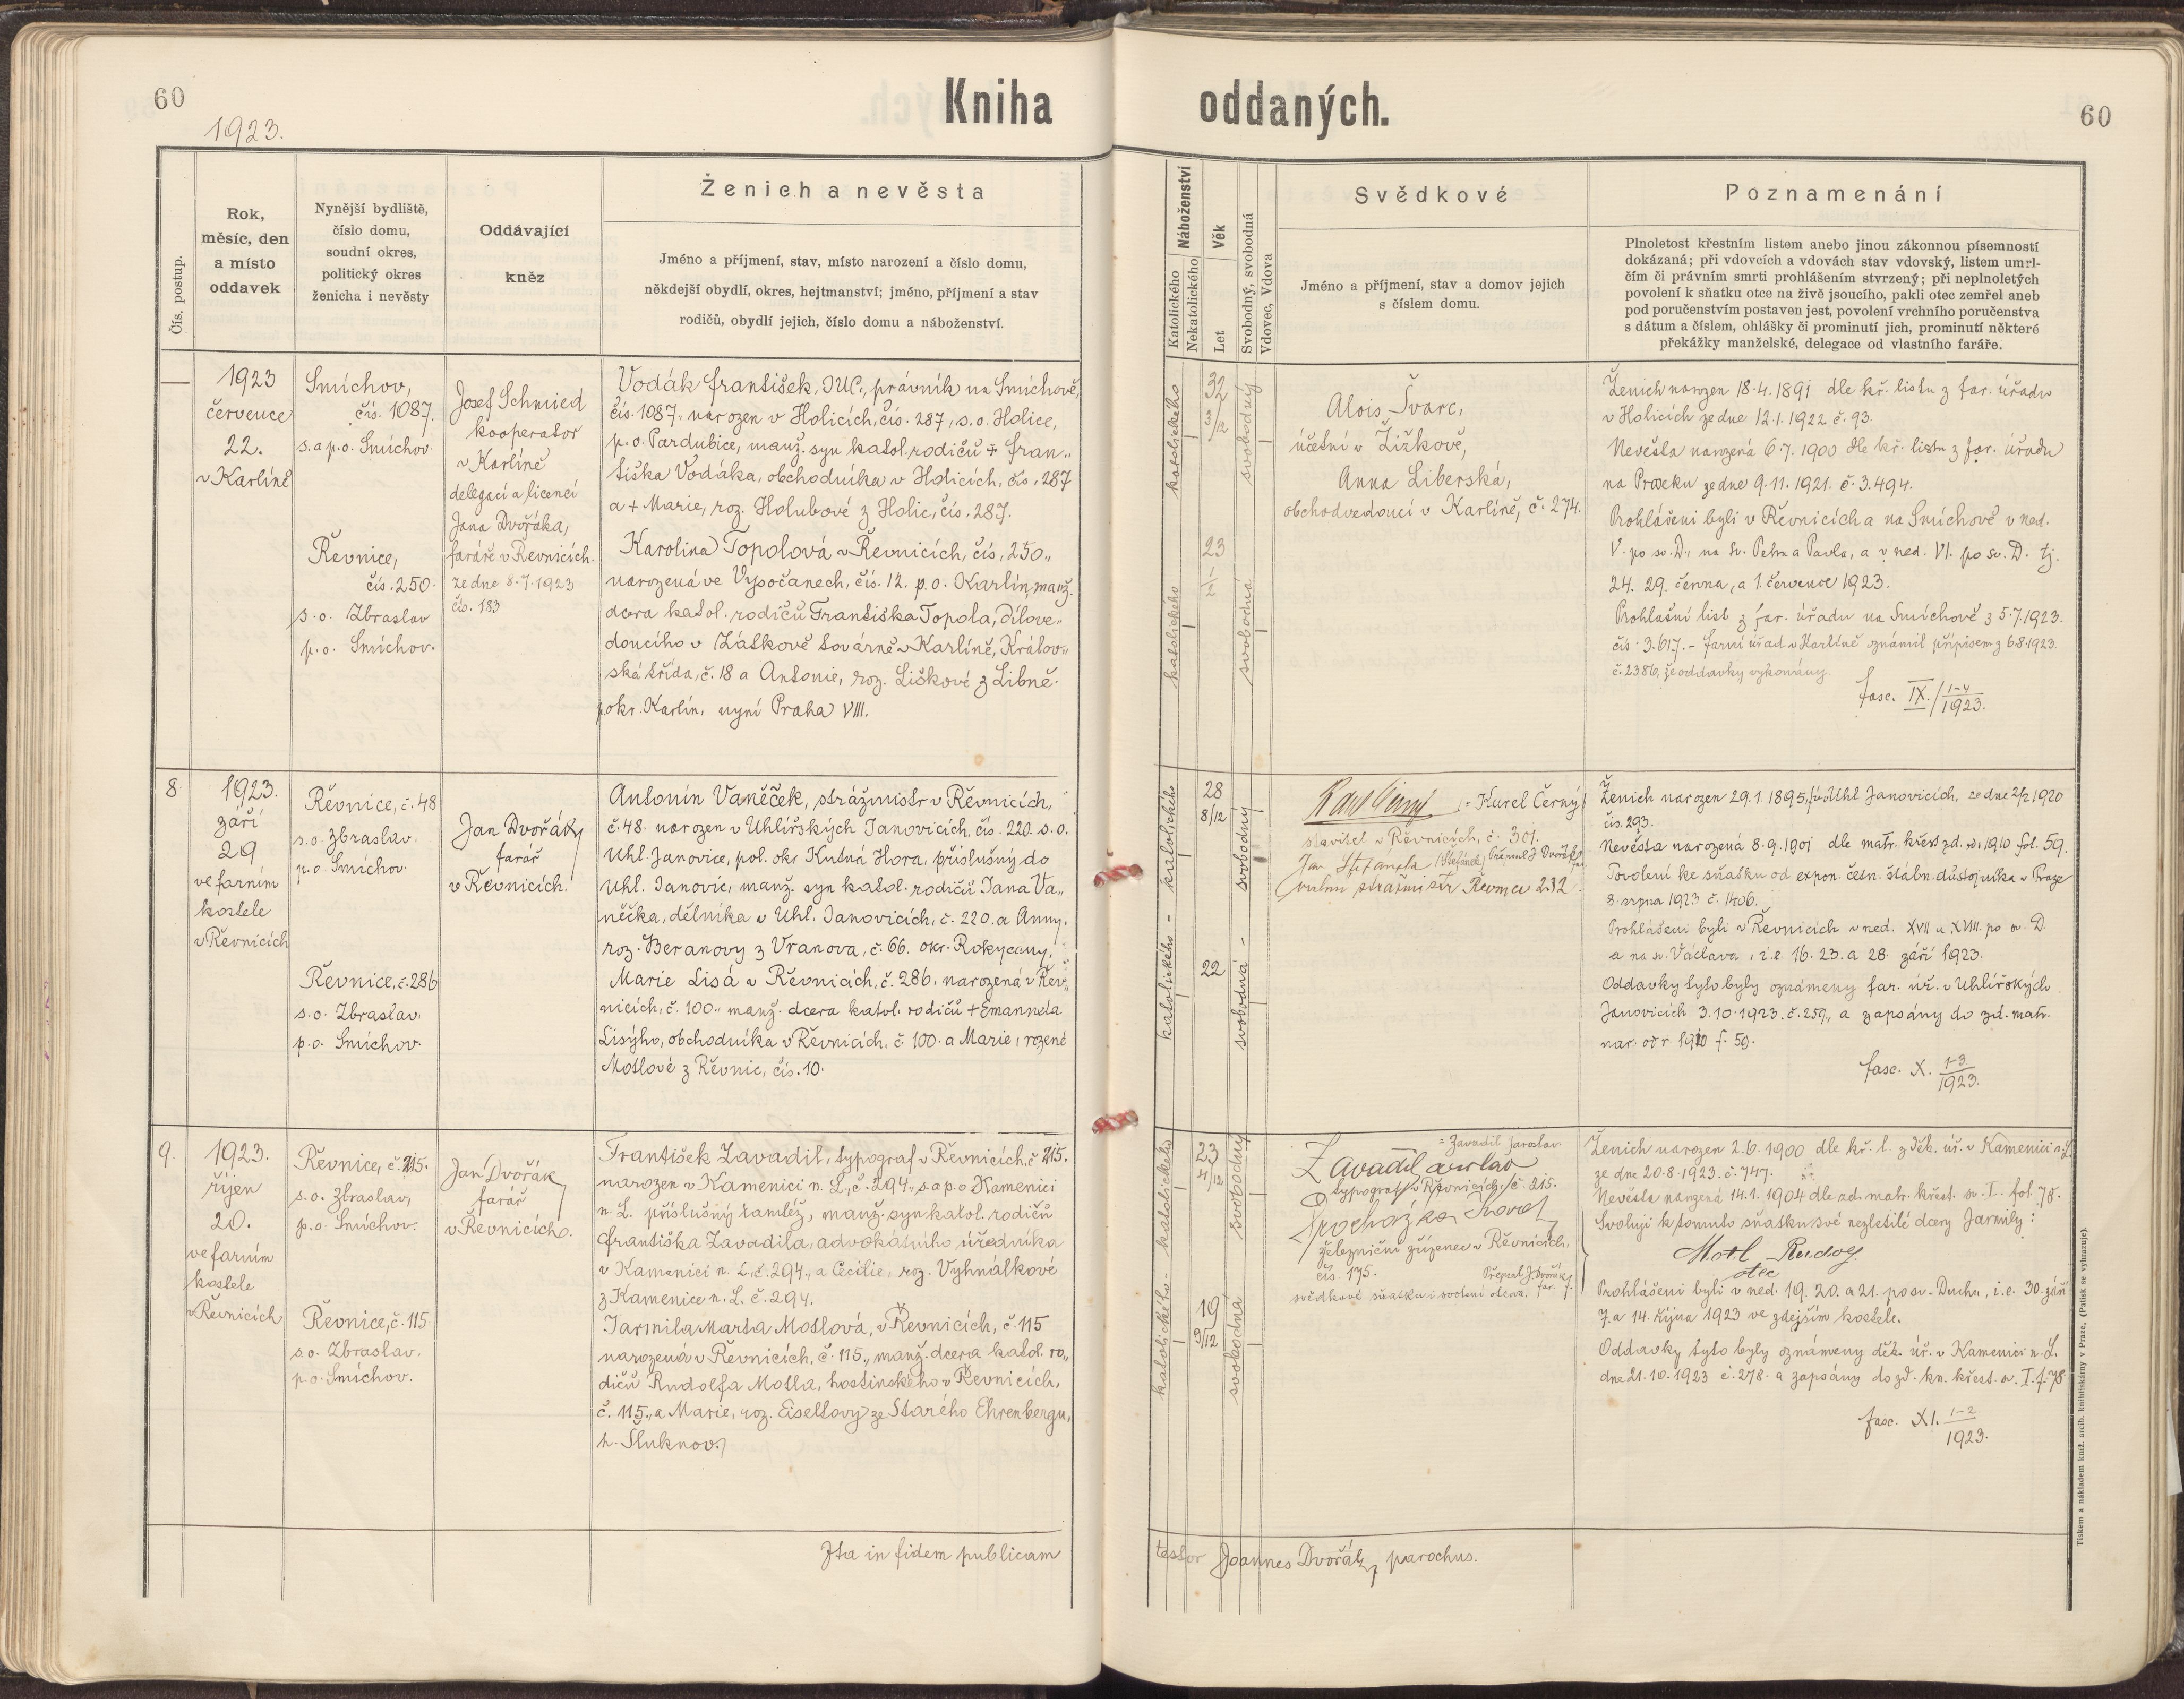 60
1923.
Kniha oddaných.
60
Čís. postup.
Rok,
měsíc, den
a místo
oddavek
Nynější bydliště,
číslo domu,
soudní okres,
politický okres
ženicha i nevěsty
Oddávající
kněz
Ženich a nevěsta
Jméno a příjmení, stav, místo narození a číslo domu,
někdejší obydlí, okres, hejtmanství; jméno, příjmení a stav
rodičů, obydlí jejich, číslo domu a náboženství.
Náboženství
Katolického
Nekatolického
Věk
Let
Svobodný, svobodná
Vdovec, Vdova
Svědkové
Jméno a příjmení, stav a domov jejich
s číslem domu.
Poznamenání
Plnoletost křestním listem anebo jinou zákonnou písemností
dokázaná; při vdovcích a vdovách stav vdovský, listem umrl-
čím či právním smrti prohlášením stvrzený; při neplnoletých
povolení k sňatku otce na živě jsoucího, pakli otec zemřel aneb
pod poručenstvím postaven jest, povolení vrchního poručenstva
s dátum a číslem, ohlášky či prominutí jich, prominutí některé
překážky manželské, delegace od vlastního faráře.
—
1923
července
22.
v Karlíně
Smíchov,
čís. 1087.
s. a p. o. Smíchov
Řevnice,
čís. 250.
s. o. Zbraslav
p. o. Smíchov.
Josef Schmied
kooperator
v Karlíně
delegací a licencí
Jana Dvořáka,
faráře v Řevnicích.
ze dne 8. 7. 1923
čís. 183
Vodák František, JUC., právník na Smíchově,
čís. 1087. narozen v Holicích, čís. 287, s. o. Holice,
p. o. Pardubice, manž. syn katol. rodičů + Fran„
tiška Vodáka, obchodníka v Holicích, čís. 287
a + Marie, roz. Holubové z Holic, čís. 287.
Karolina Topolová v Řevnicích, čís. 250.,
narozená ve Vysočanech, čís. 12. p. o. Karlín, manž.
dcera katol. rodičů Františka Topola, dílove„
doucího v Zátkově továrně v Karlíně, Králov„
ská třída, č. 18 a Antonie, roz. Liškové z Libně.
p. okr. Karlín, nyní Praha VIII.
katolického
katolického
32
3/12
23
1/2
svobodný
svobodná
Alois Švarc,
účetní v Žižkově,
Anna Liberská,
obchodvedoucí v Karlíně, č. 274.
Ženich narozen 18. 4. 1891 dle kř. listu z far. úřadu
v Holicích ze dne 12. 1. 1922 č. 93.
Nevěsta narozená 6. 7. 1900 dle kř. listu z far. úřadu
na Proseku ze dne 9. 11. 1921. č. 3.494.
Prohlášeni byli v Řevnicích a na Smíchově v ned.
V. po sv. D., na sv. Petra a Pavla, a v ned. VI. po sv. D. tj.
24. 29. června, a 1. července 1923.
Prohlašní list z far. úřadu na Smíchově z 5. 7. 1923.
čís. 3.617. – farní úřad v Karlíně oznámil přípisem z 6. 8. 1923.
č. 2386, že oddavky vykonány.
fasc. IX./ 1–4
1923.
8.
1923.
září
29
ve farním
kostele
v Řevnicích
Řevnice, č. 48
s. o. Zbraslav.
p. o. Smíchov
Řevnice, č. 286
s. o. Zbraslav.
p. o. Smíchov.
Jan Dvořák,
farář
v Řevnicích.
Antonín Vaněček, strážmistr v Řevnicích,
č. 48. narozen v Uhlířských Janovicích, čís. 220. s. o.
Uhl. Janovice, pol. okr. Kutná Hora, příslušný do
Uhl. Janovic, manž. syn katol. rodičů Jana Va„
něčka, dělníka v Uhl. Janovicích, č. 220. a Anny,
roz. Beranovy z Vranova, č. 66. okr. Rokycany.
Marie Lisá v Řevnicích, č. 286. narozená v Řev„
nicích, č. 100., manž. dcera katol. rodičů + Emanuela
Lisýho, obchodníka v Řevnicích, č. 100. a Marie, rozené
Motlové z Řevnic, čís. 10.
katolického – katolického
28
8/12
22
svobodná – svobodný
Karel Černý = Karel Černý
stavitel v Řevnicích, č. 301.
Jan Štefánek (Štefánek) Přepsal J. Dvořák
strážmistr Řevnice 232
Ženich narozen 29. 1. 1895, v Uhl. Janovicích, ze dne 2/2 1920
čís. 293.
Nevěsta narozená 8. 9. 1901 dle matr. křest. zd. 1910 fol. 59.
Povolení ke sňatku od expon. četn. štábn. důstojníka v Praze
8. srpna 1923 č. 1406.
Prohlášeni byli v Řevnicích v ned. XVII a XVIII. po sv. D.
a na sv. Václava, i. e. 16. 23. a 28. září 1923.
Oddavky tyto byly oznámeny far. úř. v Uhlířských
Janovicích 3. 10. 1923. č. 259., a zapsány do zd. matr.
nar. od r. 1910 f. 59.
fasc. X. 1–3
1923.
9.
1923.
říjen
20.
ve farním
kostele
v Řevnicích
Řevnice, č. 215.
s. o. Zbraslav,
p. o. Smíchov.
Řevnice, č. 115.
s. o. Zbraslav.
p. o. Smíchov.
Jan Dvořák,
farář
v Řevnicích.
František Zavadil, typograf v Řevnicích, č. 215.
narozen v Kamenici n. L., č. 294., s. a p. o. Kamenici
n. L. příslušný tamtéž, manž. syn katol. rodičů
Františka Zavadila, advokátního úředníka
v Kamenici n. L. č. 294., a Cecilie, roz. Vyhnálkové
z Kamenice n. L. č. 294.
Jarmila Marta Motlová, v Řevnicích, č. 115
narozená v Řevnicích, č. 115., manž. dcera katol. ro„
dičů Rudolfa Motla, hostinského v Řevnicích,
č. 115., a Marie, roz. Eiseltovy ze Starého Ehrenbergu,
h. Šluknov.
katolického – katolického
23
4/12
19
9/12
svobodná
svobodný
= Zavadil Jaroslav.
Zavadil Jaroslav
typograf v Řevnicích, č. 215.
Procházka Karel
železniční zřízenec v Řevnicích,
čís. 175. Přepsal J. Dvořák,
svědkové sňatku i svolení otcova. far.
Ženich narozen 2. 6. 1900 dle kř. l. z děk. úř. v Kamenici n. L.
ze dne 20. 8. 1923. č. 747.
Nevěsta narozená 14. 1. 1904 dle zd. matr. křest. sv. I. fol. 78.
Svoluji k tomuto sňatku své nezletilé dcery Jarmily:
Motl Rudolf
otec
Prohlášeni byli v ned. 19. 20. a 21. po sv. Duchu, i. e. 30. září
7. a 14. října 1923 ve zdejším kostele.
Oddavky tyto byly oznámeny děk. úř. v Kamenici n. L.
dne 21. 10. 1923 č. 278. a zapsány do zd. kn. křest. sv. I. f. 78
fasc. XI. 1–2
1923.
Ita in fidem publicam testor Joannes Dvořák, parochus.
Tiskem a nákladem kníž. arcib. knihtiskárny v Praze. (Patisk se vyhrazuje).